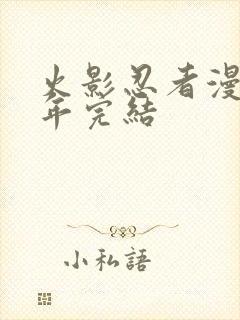 火影忍者漫
年完結
小私語